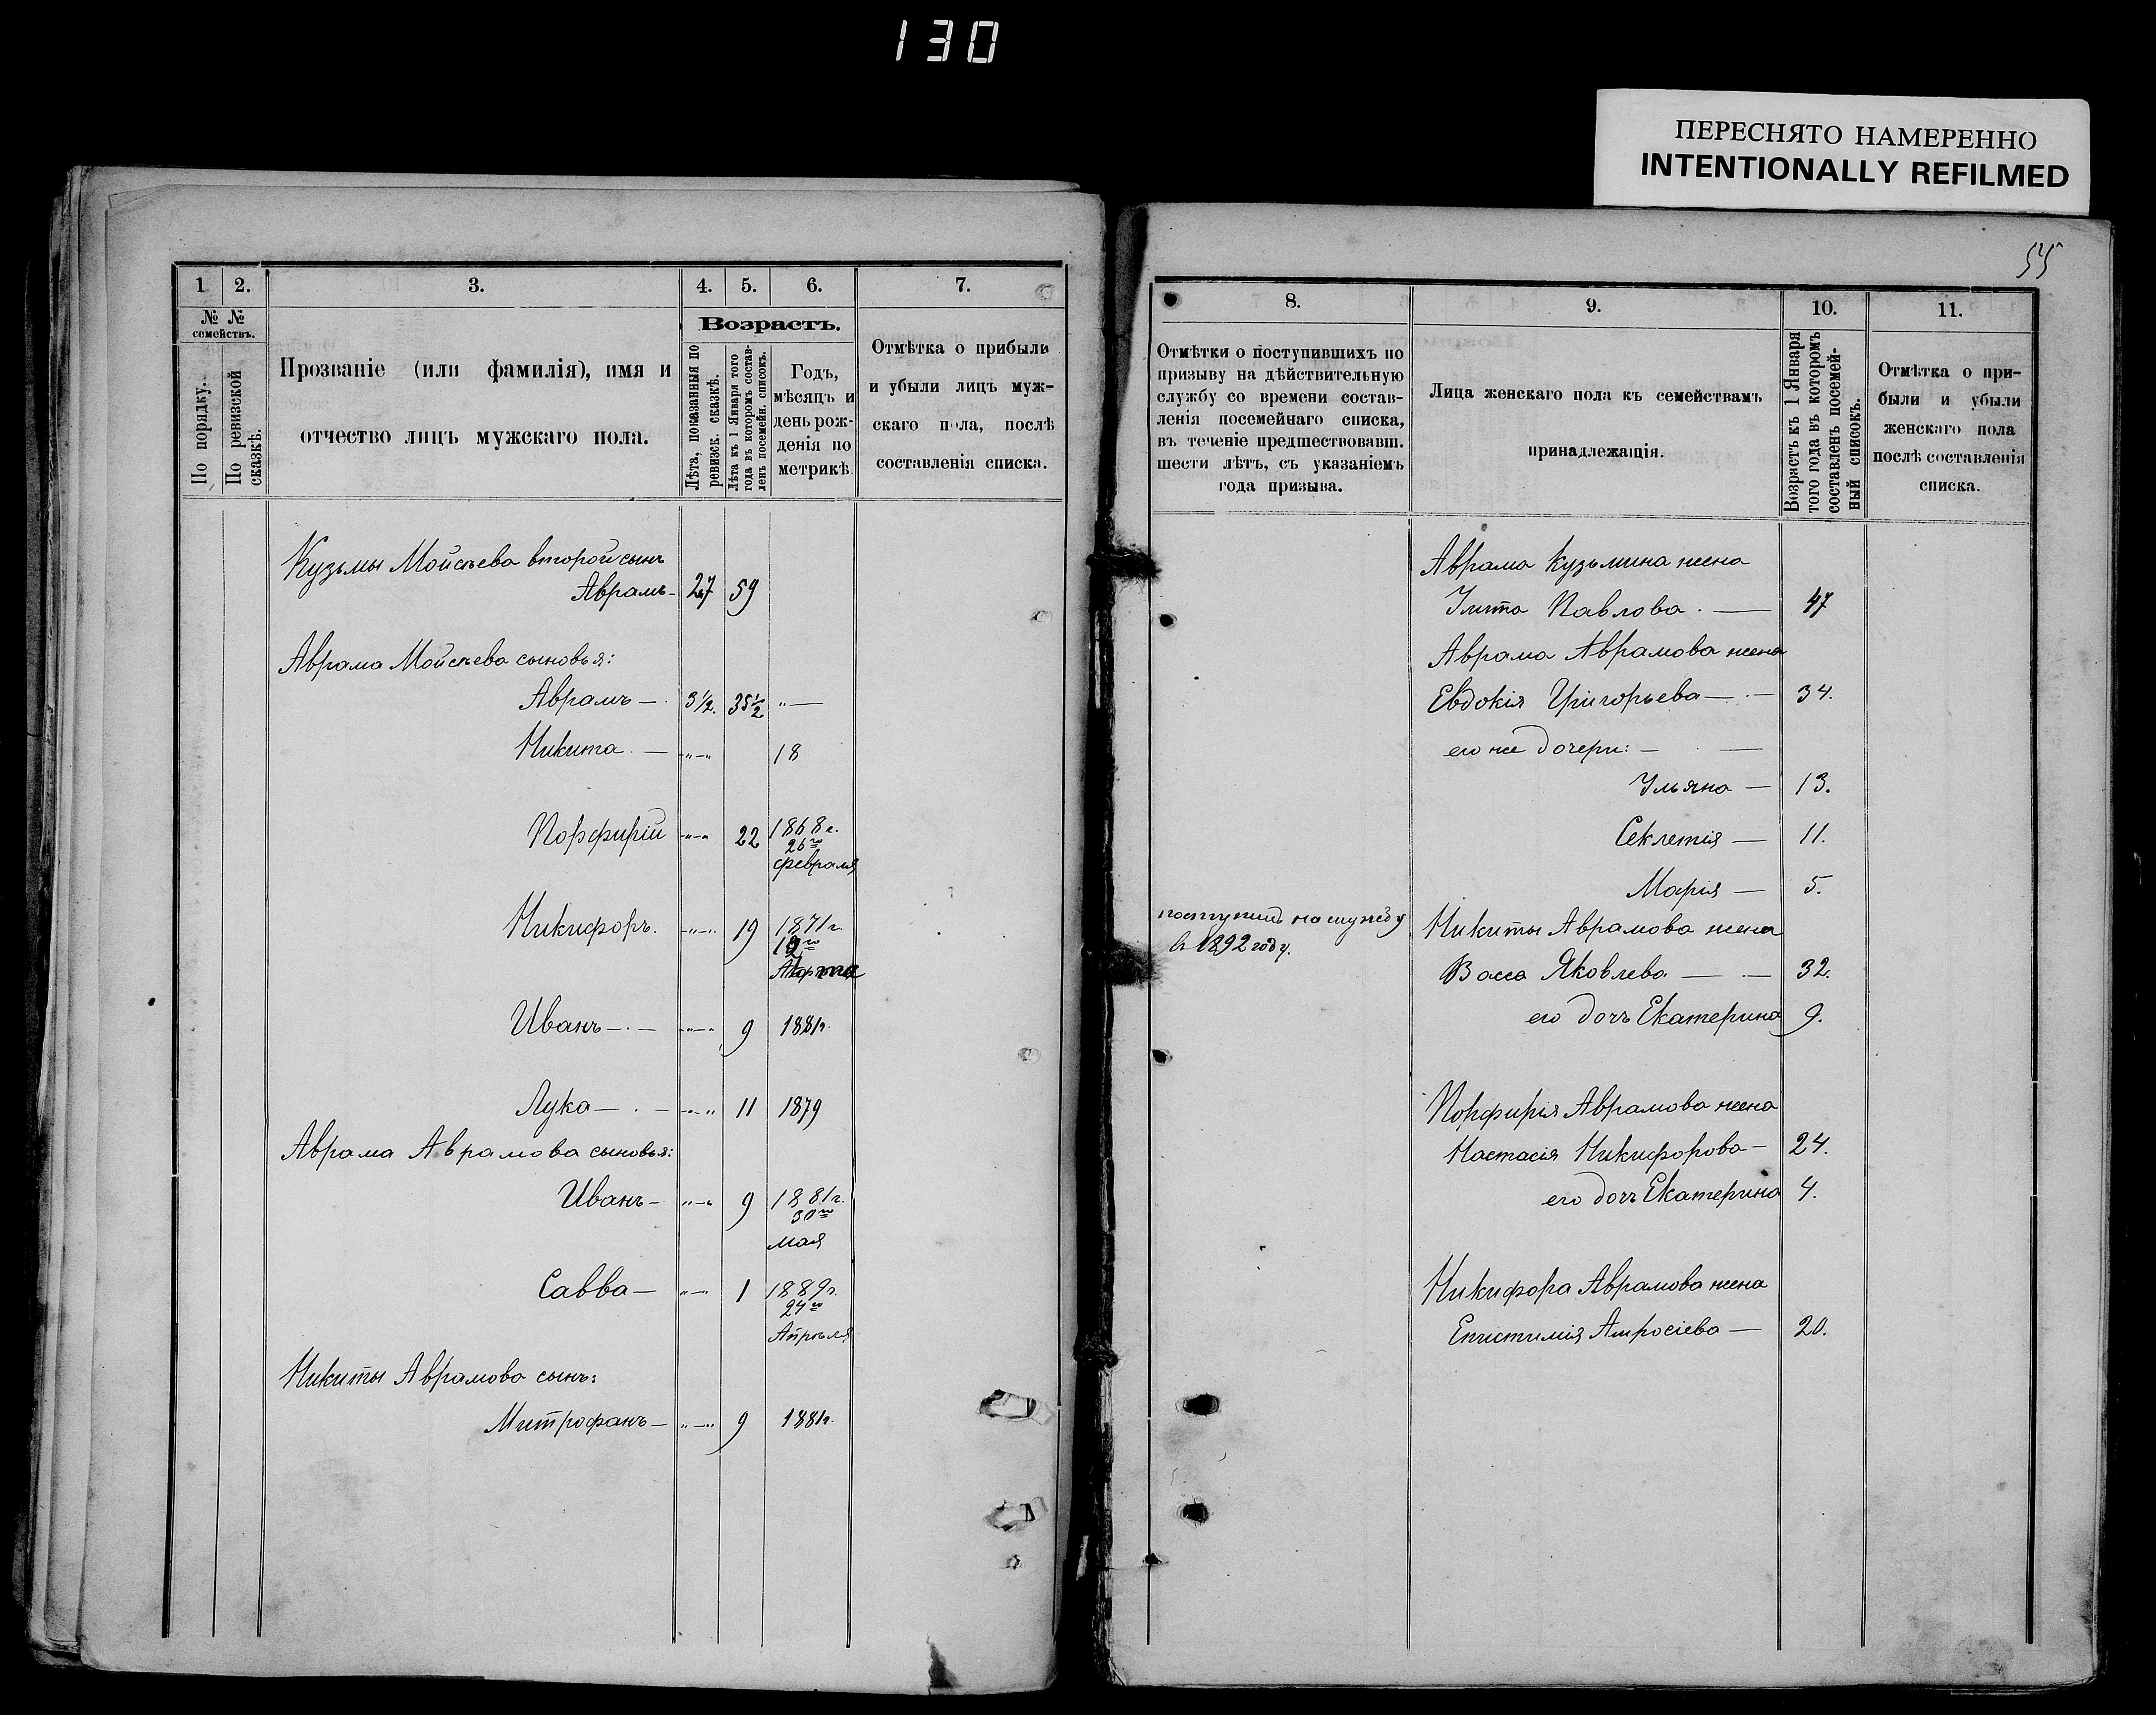 130
ПЕРЕСНЯТО НАМЕРЕННО
INTENTIONALLY REFILMED
55
1
2.
3.
4.
5.
6.
7.
№ №
семействъ.
По порядку.
По ревизской
сказкѣ.
Прозваніе (или фамилія), имя и
отчество лицъ мужскаго пола.
Возрастъ.
Лѣта, показанныя по
ревизск. сказкѣ.
Лѣта къ 1 Января того
года въ которомъ состав-
ленъ посемейн. списокъ.
Годъ,
мѣсяцъ и
день рож-
денія по
метрикѣ
Отмѣтка о прибыли
и убыли лицъ муж-
скаго пола, послѣ
составленія списка.
Кузьмы Мойсѣева второй сынъ
Аврамъ- 27 59
Аврама Мойсѣева сыновья:
Аврамъ — 3 1/2. 35 1/2 "—
Никита. — "—" 18
Порфирій "—" 22 1868 г.
26го
февраля
Никифоръ. "—" 19 1871 г.
Марта
Иванъ — . — "—" 9 1881г.
Лука — . — "—" 11 1879
Аврама Аврамова сыновья:
Иванъ — "—" 9 1881г.
30го
мая
Савва — "—" 1 1889г.
24го
Апрѣля
Никиты Аврамова сынъ:
Митрофанъ — "—" 9 1881г.
8.
9.
10.
11.
Отмѣтки о поступившихъ по
призыву на дѣйствительную
службу со времени состав-
ленія посемейнаго списка,
въ теченіе предшествовавш.
шести лѣтъ, съ указаніемъ
года призыва.
Лица женскаго пола къ семействамъ
принадлежащія.
Возрастъ къ 1 Января
того года въ которомъ
составленъ посемей-
ный списокъ.
Отмѣтка о при-
были и убыли
женскаго пола
послѣ составленія
списка.
Аврама Кузьмина жена
Павлова. — 47
Аврама Аврамова жена
Евдокія Григорьева — . — 34.
его же дочери: — —
Ульяна — 13.
Секлетія — 11.
Марія — 5.
поступилъ на службу
въ 1892 году.
Никиты Аврамова жена
Васса Яковлева — — 32.
его дочь Екатерина 9.
Порфирія Аврамова жена
Настасія Никифорова — 24.
его дочь Екатерина 4.
Никифора Аврамова жена
Епистимія Амросіева — 20.